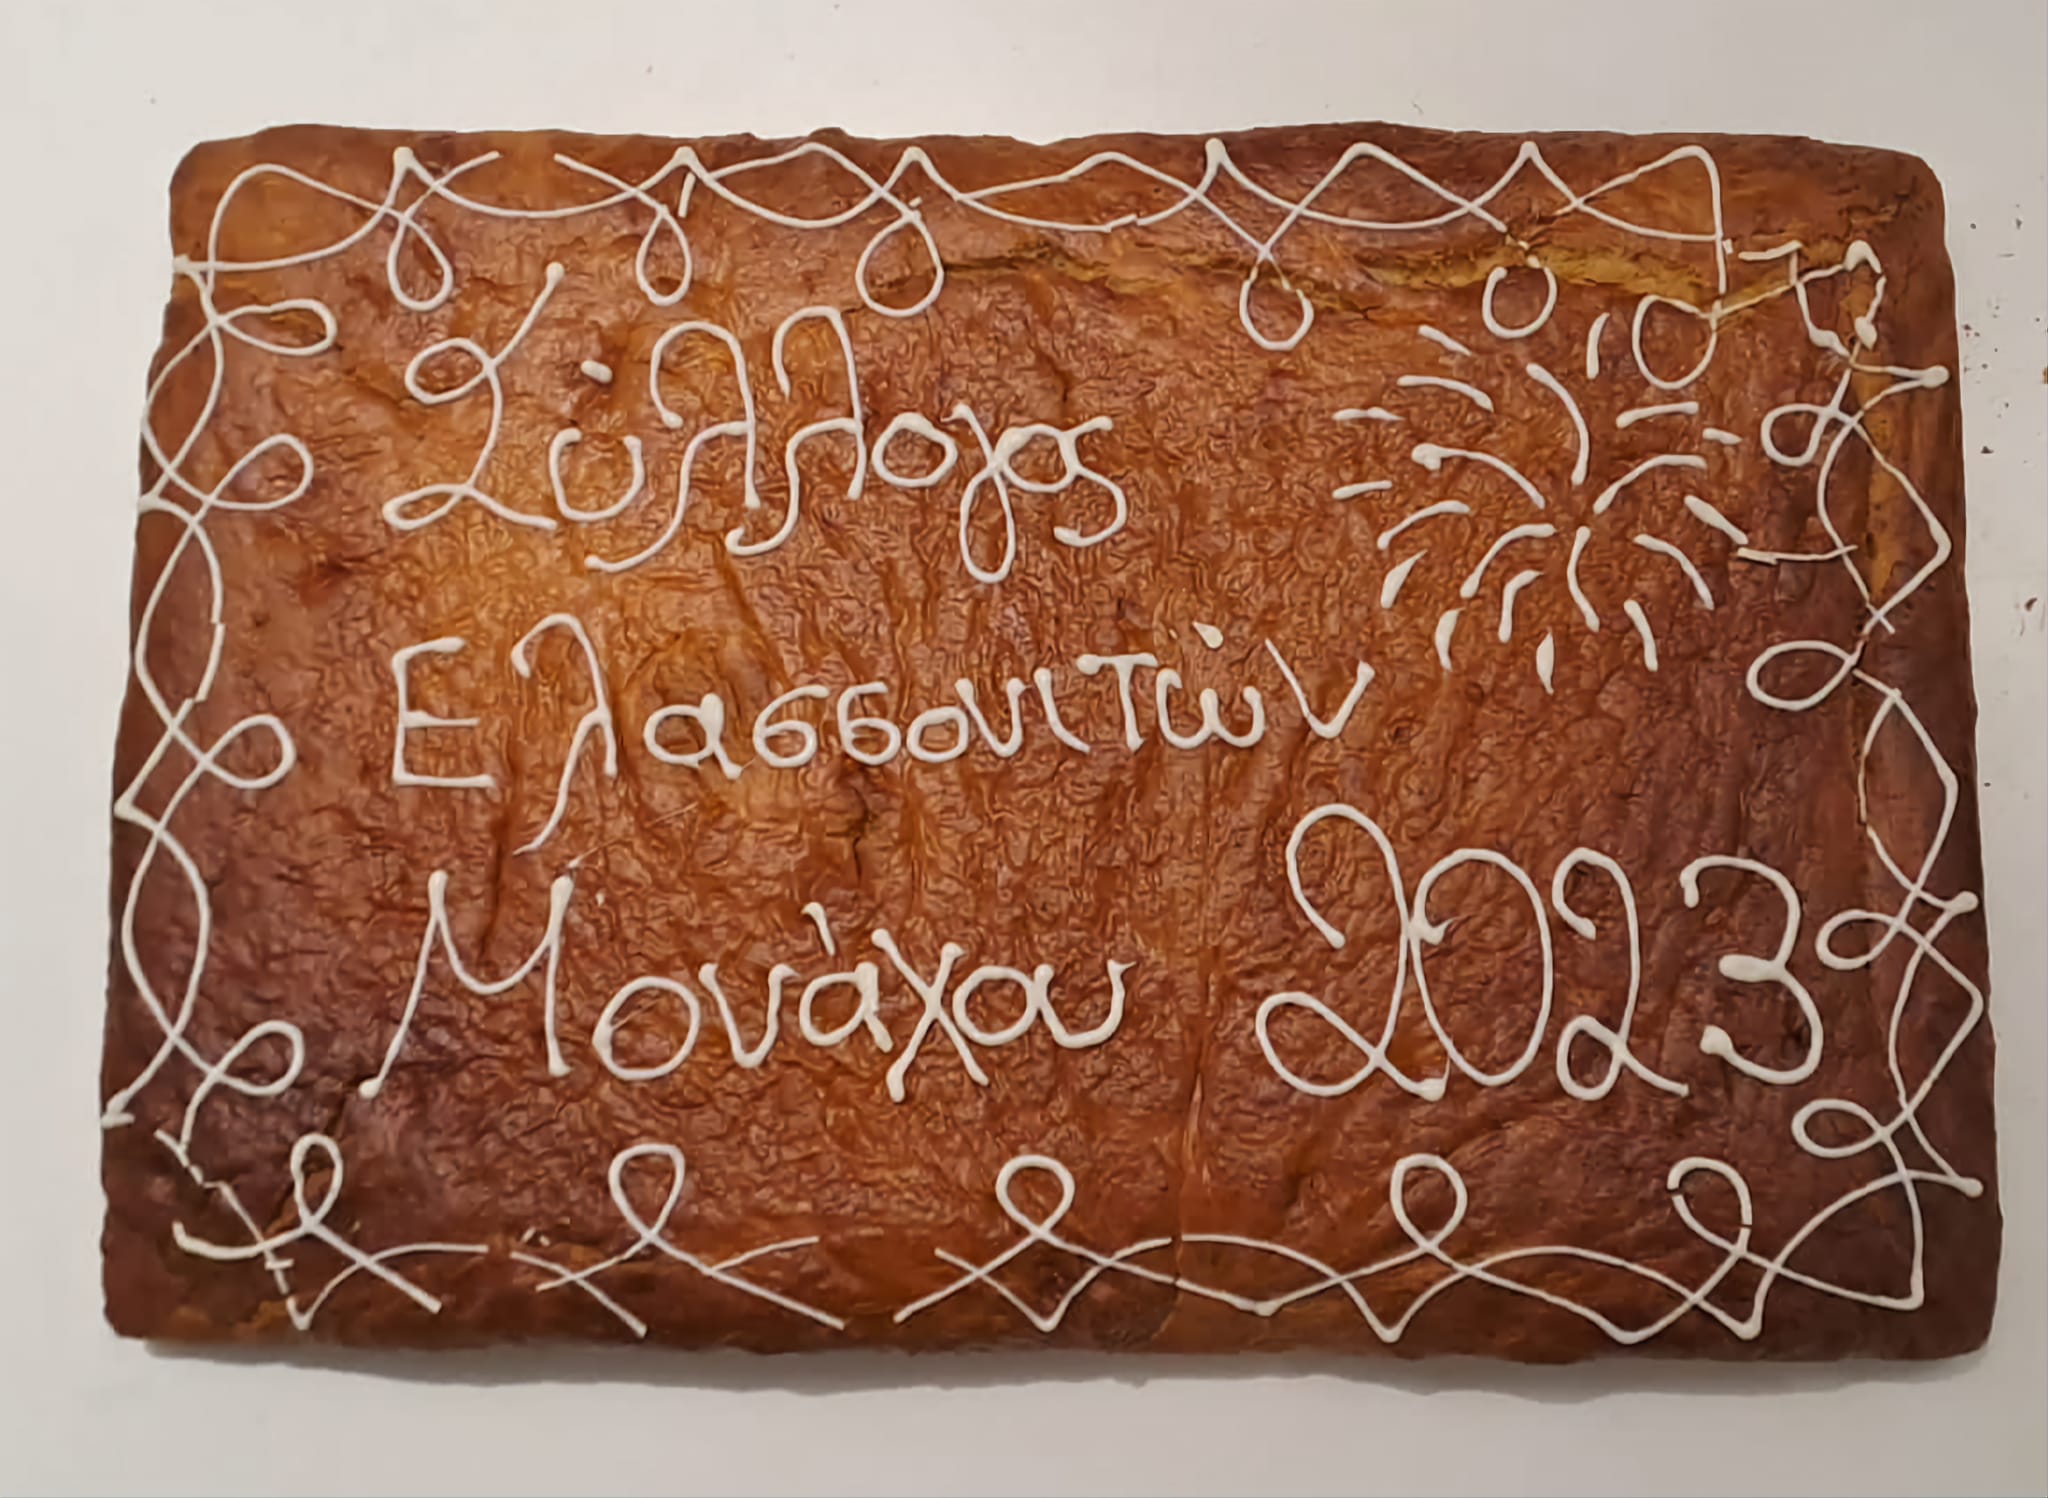 Σύλλογος
Ελασσονιτών
Μονάχου 2023